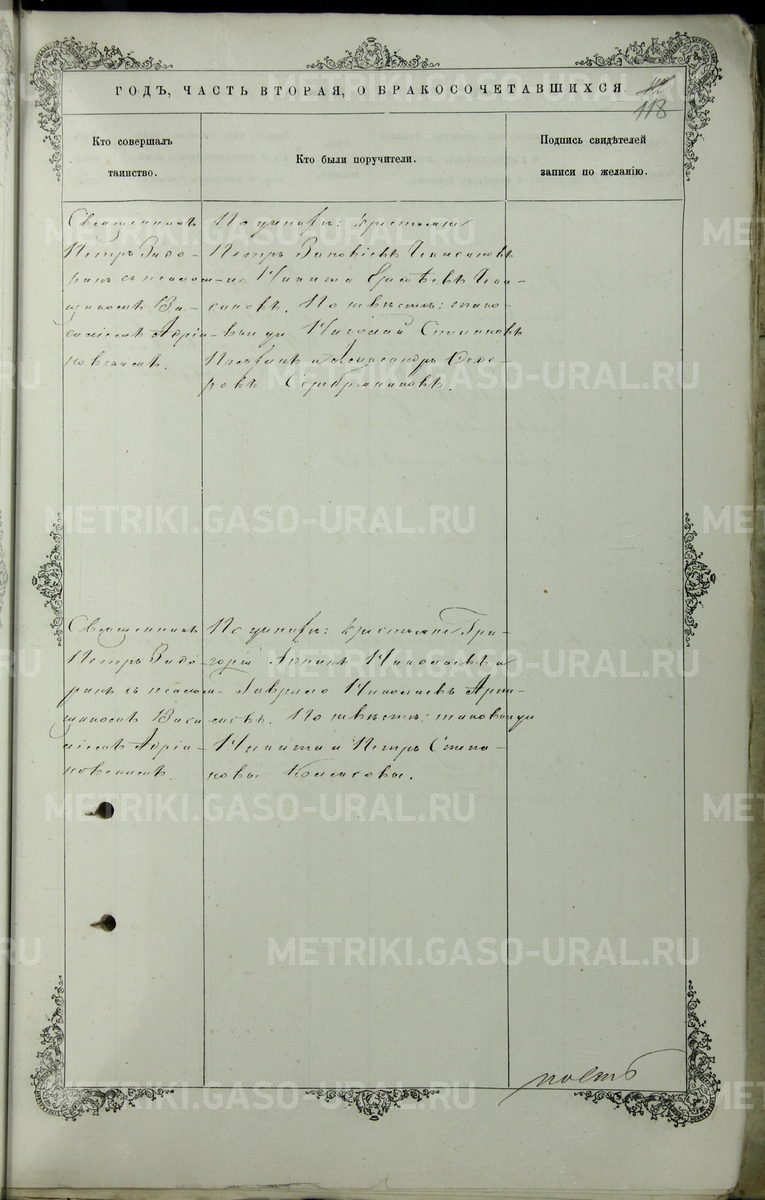 ГОДЪ, ЧАСТЬ ВТОРАЯ, О БРАКОСОЧЕТАВШИХСЯ
118
Кто совершалъ
таинство.
Кто были поручители.
Подпись свидѣтелей
записи по желанію.
Священникъ
Петръ Задо-
ринъ съ псалом-
щикомъ Ва-
силіемъ Адріа-
новскимъ.
По женихѣ: крестьяне
Петръ Зиновіевъ
-но Никита
По невѣстѣ: тако-
выи же Николай Степановъ
и Александръ Ѳедо-
ровъ Серебрянниковъ.
Священникъ
Петръ Задо-
ринъ съ псалом-
щикомъ Васи-
ліемъ Адріа-
новскимъ.
По женихѣ: крестьяне Гри-
горій Николаевъ и
Гаврило Николаевъ
По невѣстѣ: таковыи же
Никита и Петръ Степа-
новы
METRIKI.GASO-URAL.RU